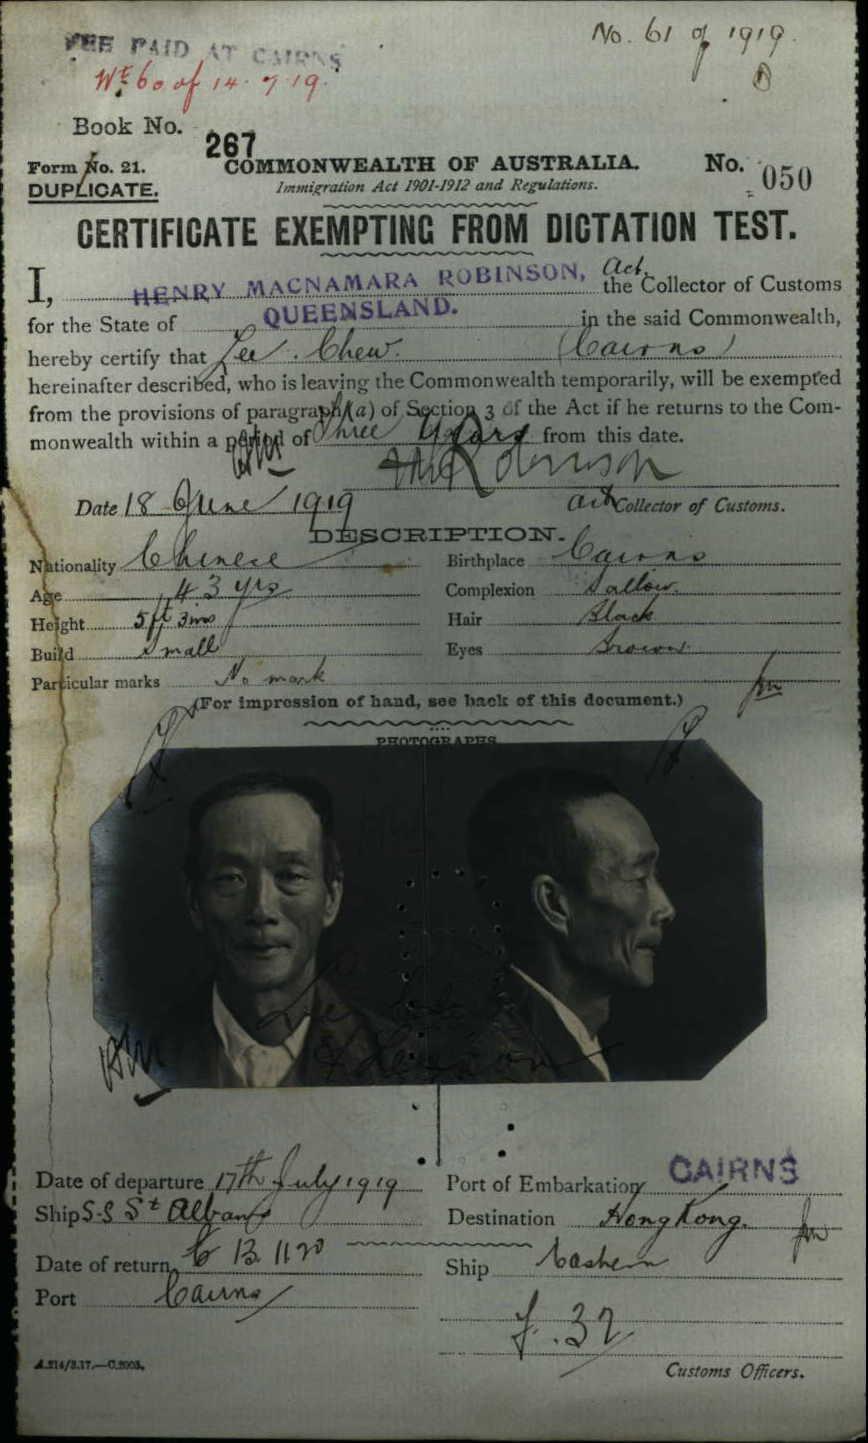 FEE PAID AT CAIRNS
No. 61 of 1919.
14.7.19.
Book No. 267
Form No. 21.
COMMONWEALTH OF AUSTRALIA.
No. 050
DUPLICATE.
Immigration Act 1901-1912 and Regulations.
CERTIFICATE EXEMPTING FROM DICTATION TEST.
I, HENRY MACNAMARA ROBINSON, Act. the Collector of Customs
for the State of QUEENSLAND. in the said Commonwealth,
hereby certify that Lee Chew. (Cairns)
hereinafter described, who is leaving the Commonwealth temporarily, will be exempted
from the provisions of paragraph (a) of Section 3 of the Act if he returns to the Com-
monwealth within a period of Three Years from this date.
HMRobinson
Date 18 June 1919
Act Collector of Customs.
DESCRIPTION.
Nationality Chinese Birthplace Cairns
Age 43 yrs Complexion Sallow.
Height 5ft 3ins Hair Black
Build Small Eyes Brown.
Particular marks No mark
(For impression of hand, see back of this document.)
PHOTOGRAPHS
Date of departure 17th July 1919 Port of Embarkation CAIRNS
Ship S.S St Albans Destination Hong Kong.
Date of return 13 11 20 Ship Eastern
Port Cairns
f. 37
A.214/3.17.—C.2003.
Customs Officers.